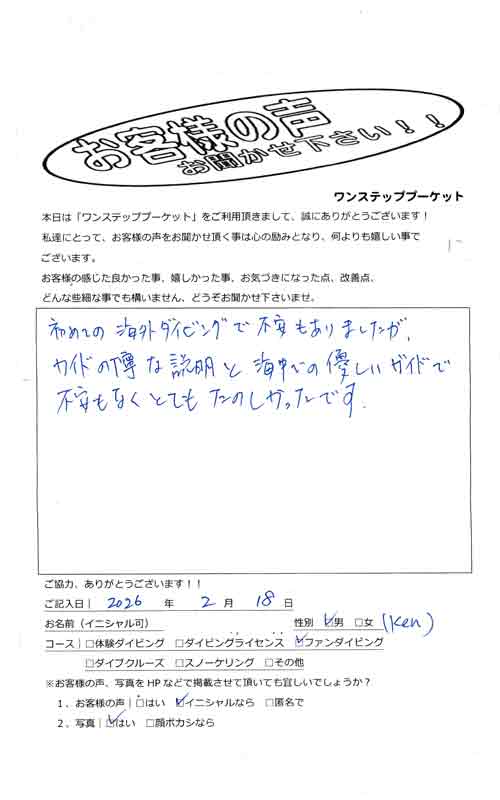 お客様の声
お聞かせ下さい！！
ワンステッププーケット
本日は「ワンステッププーケット」をご利用頂きまして、誠にありがとうございます！
私達にとって、お客様の声をお聞かせ頂く事は心の励みとなり、何よりも嬉しい事で
ございます。
お客様の感じた良かった事、嬉しかった事、お気づきになった点、改善点、
どんな些細な事でも構いません、どうぞお聞かせ下さいませ。
初めての海外ダイビングで不安もありましたが、
ガイドの丁寧な説明と海中での優しいガイドで
不安もなくとてもたのしかったです。
ご協力、ありがとうございます！！
ご記入日｜ 2026 年 2 月 18 日
お名前（イニシャル可） 性別 ☑男 □女 (Ken)
コース｜□体験ダイビング □ダイビングライセンス ☑ファンダイビング
□ダイブクルーズ □スノーケリング □その他
※お客様の声、写真をHPなどで掲載させて頂いても宜しいでしょうか？
1．お客様の声｜□はい ☑イニシャルなら □匿名で
2．写真｜☑はい □顔ボカシなら